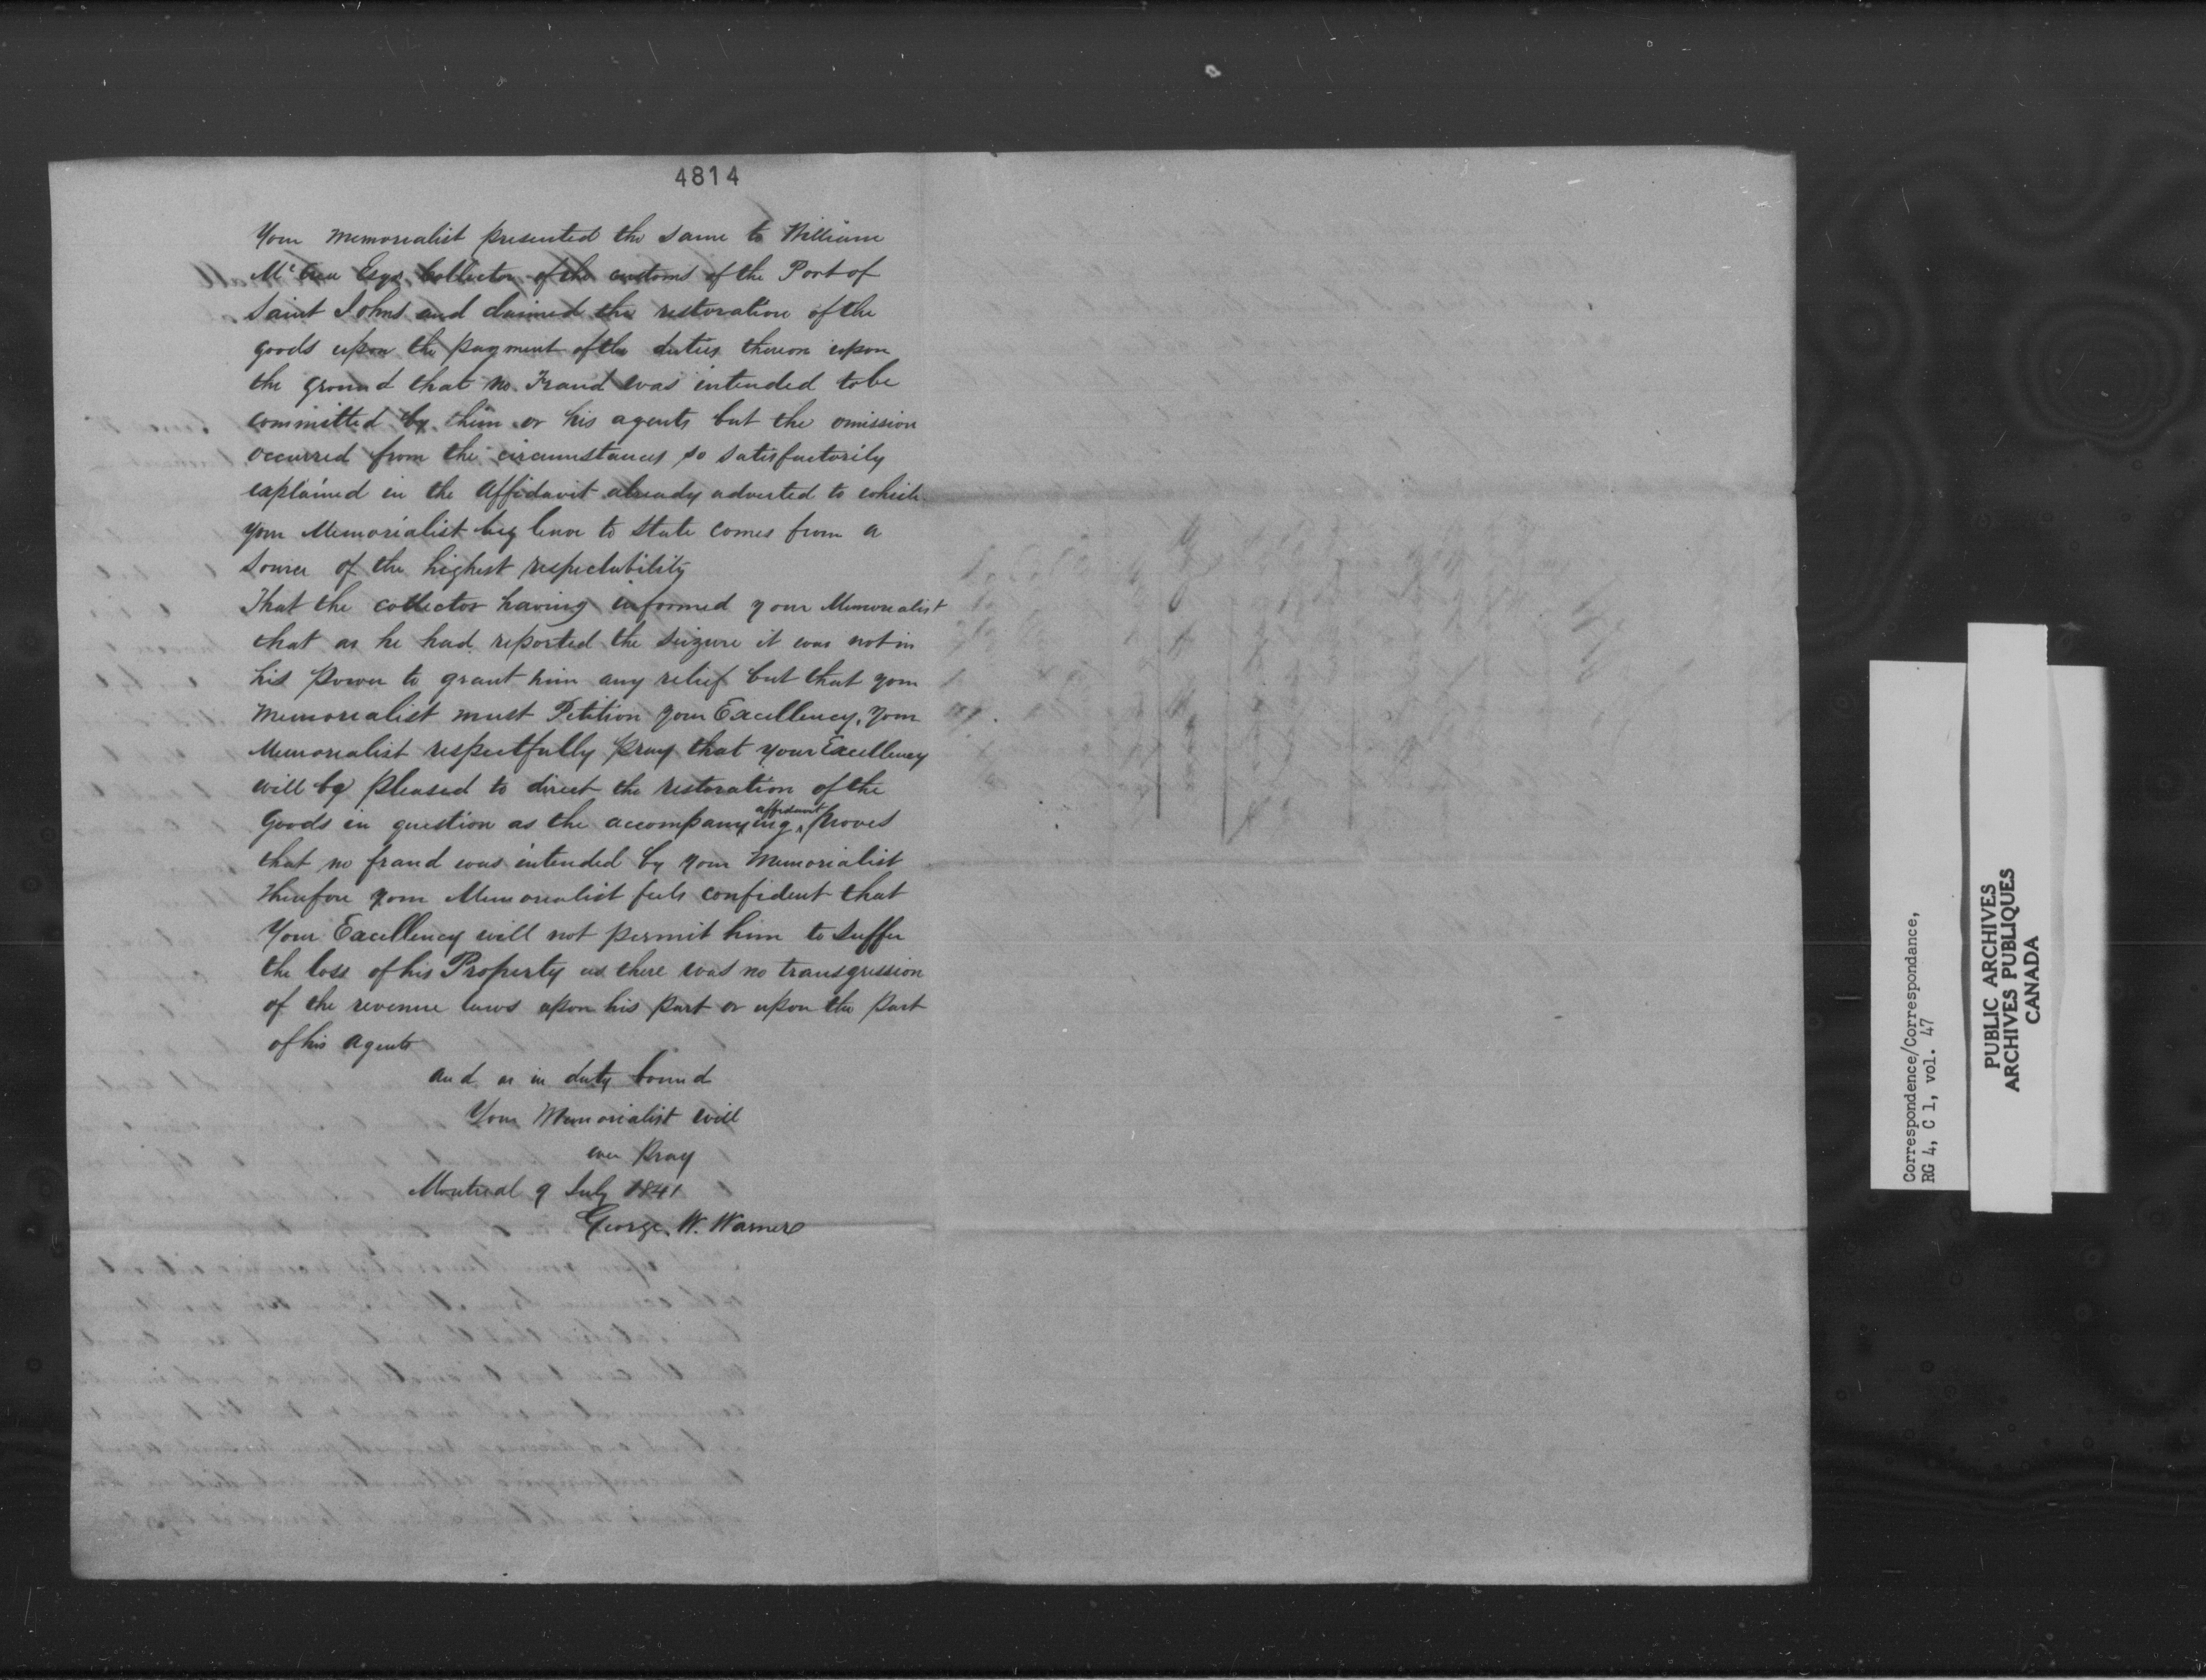 4814
Your Memorialist presented the same to William
McCrea Esqr. Collector of the customs of the Port of
Saint Johns and claimed the restoration of the
goods upon the payment of the duties thereon upon
the ground that no Fraud was intended to be
committed by him or his agents but the omission
occurred from the circumstances so satisfactorily
explained in the Affidavit already adverted to which
your Memorialist beg leave to state comes from a
source of the highest respectability
That the collector having informed your Memorialist
that as he had reported the seizure it was not in
his power to grant him any relief but that your
Memorialist must Petition your Excellency, Your
Memorialist respectfully pray that your Excellency
will be pleased to direct the restoration of the
Goods in question as the accompanying affidavit proves
that no fraud was intended by your Memorialist
Therefore your Memorialist feels confident that
Your Excellency will not permit him to suffer
the loss of his Property as there was no transgression
of the revenue laws upon his part or upon the part
of his Agents
and as in duty bound
Your Memorialist will
ever Pray
Montreal 9 July 1841
George. W. Warner
Correspondence/Correspondance,
RG 4, C 1, vol. 47
PUBLIC ARCHIVES
ARCHIVES PUBLIQUES
CANADA